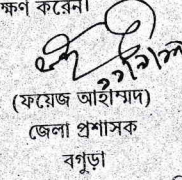 ক্ষণ করেন।
(ফয়েজ আহাম্মদ)
জেলা প্রশাসক
বগুড়া